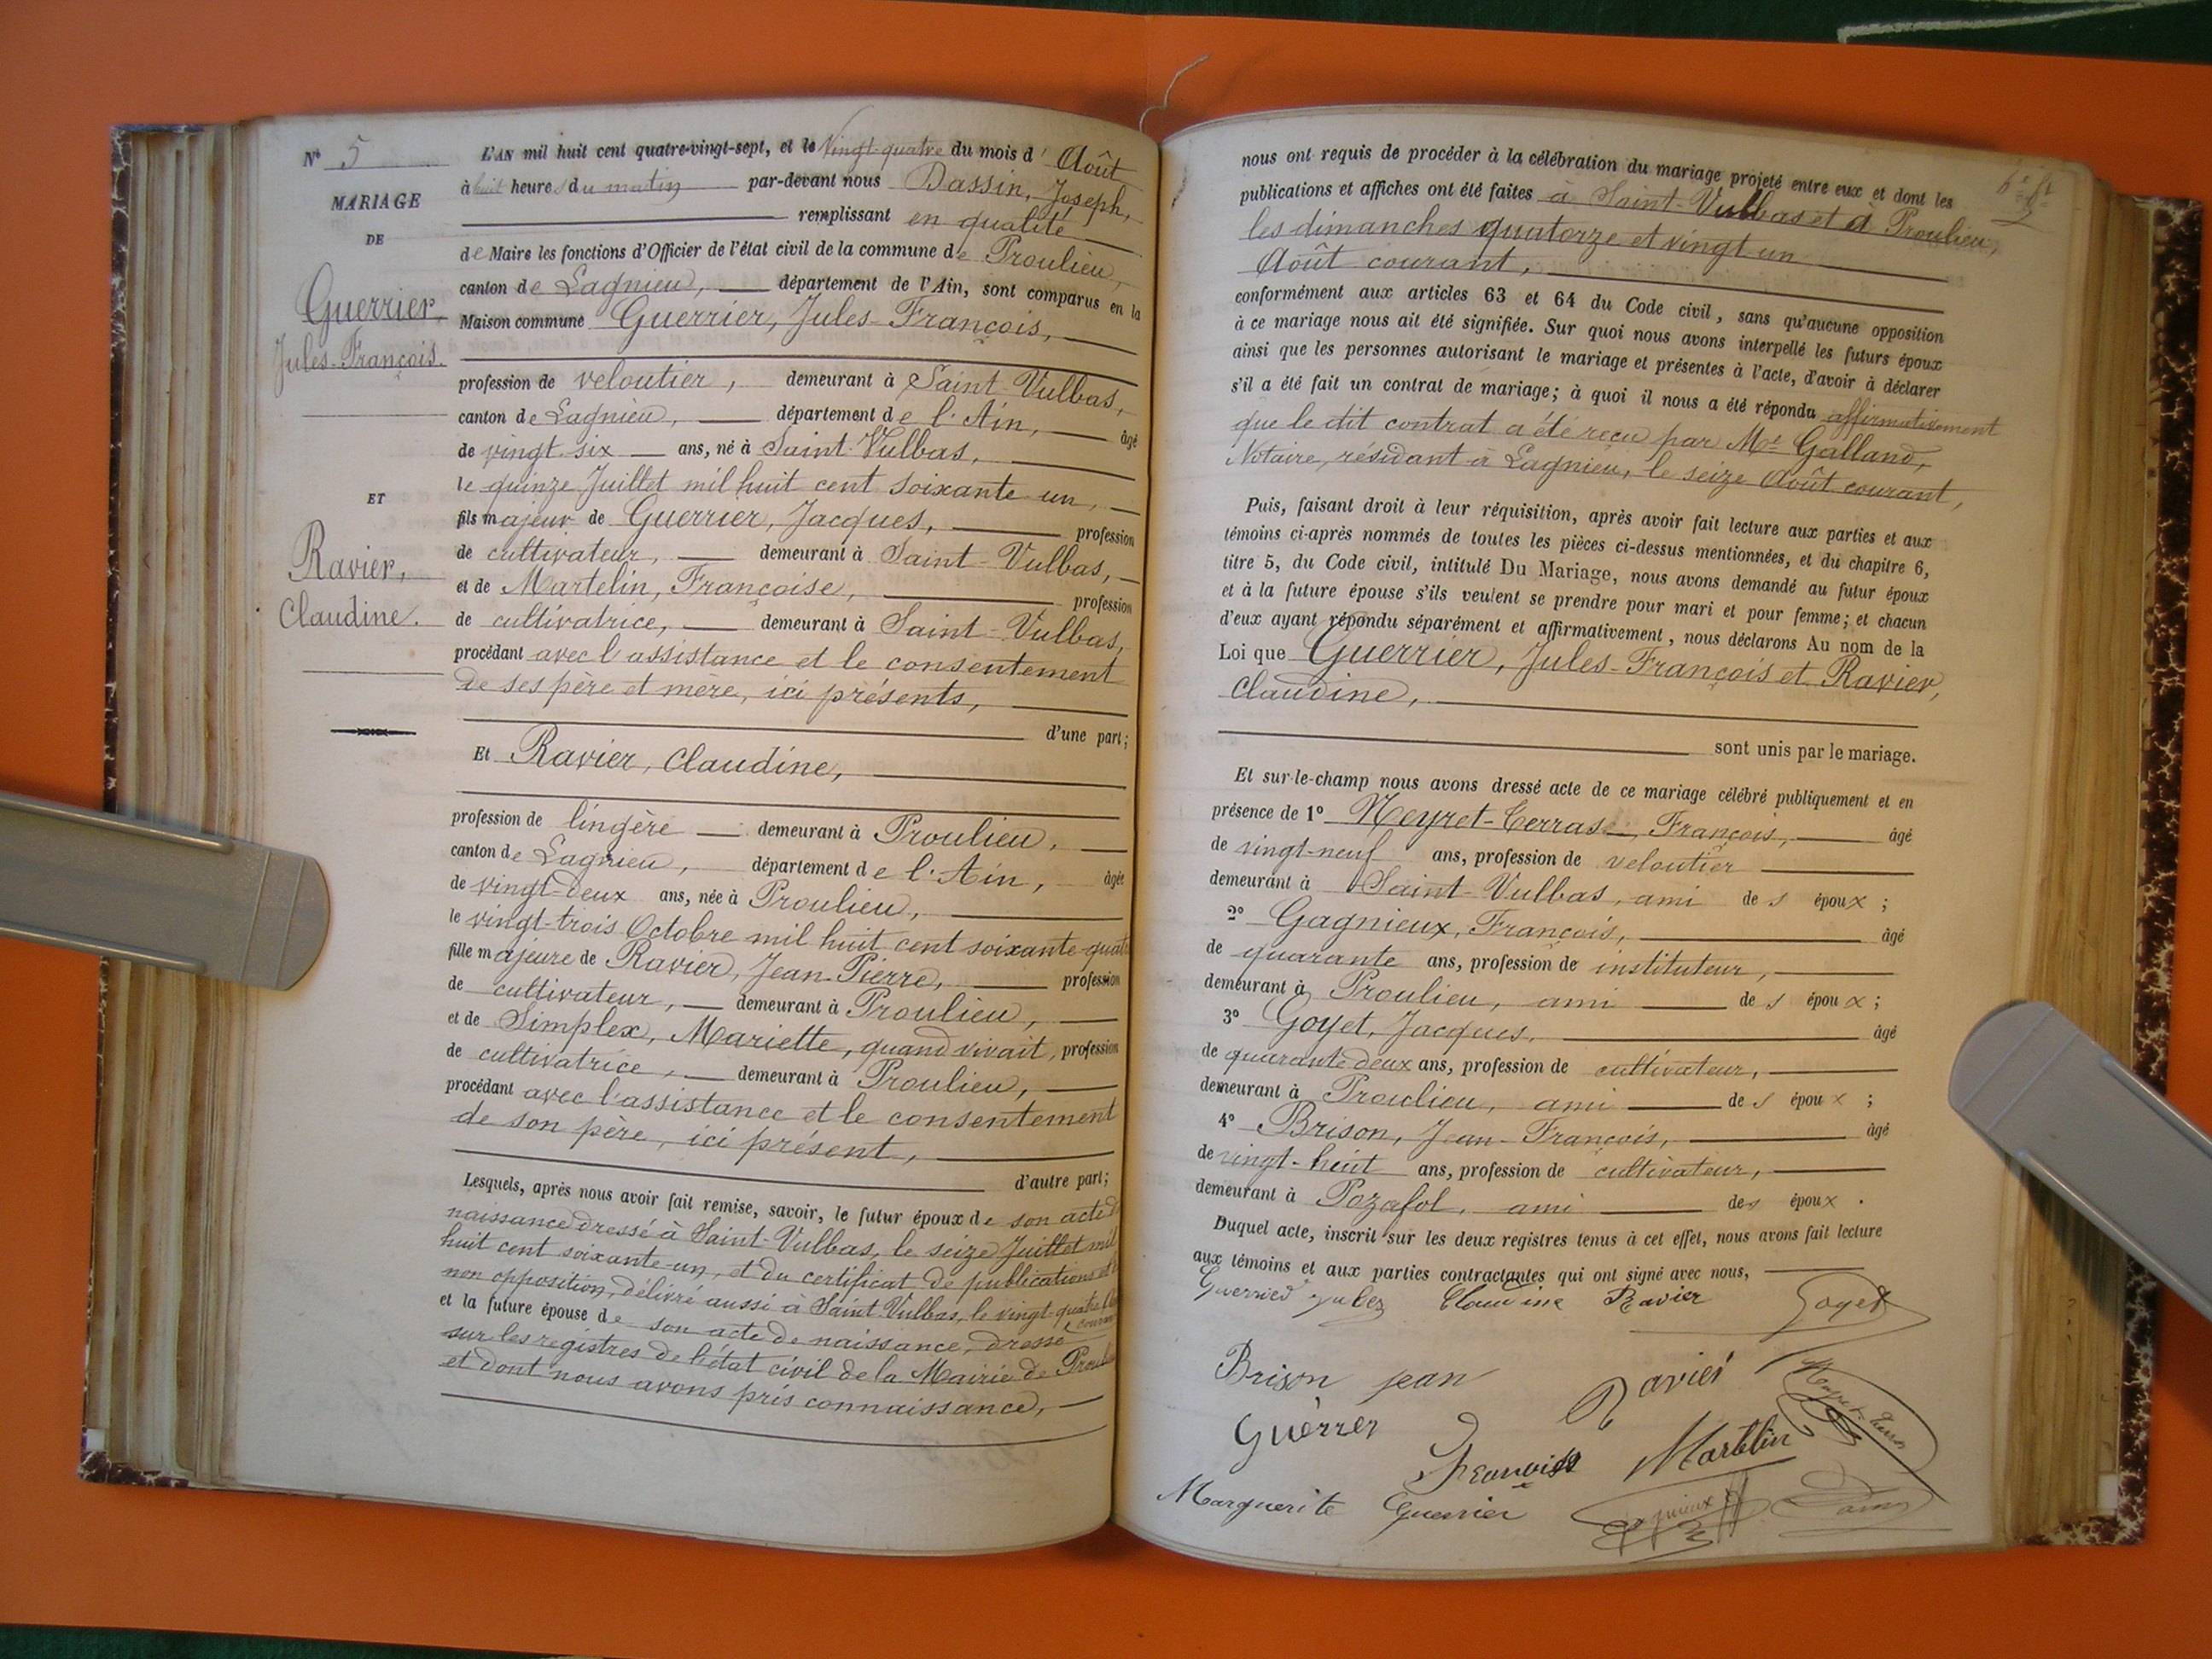 Nº 5
MARIAGE
DE
Guerrier
Jules-François.
ET
Ravier,
Claudine.
L'AN mil huit cent quatre-vingt-sept, et le vingt-quatre du mois d'Août
à huit heures du matin par-devant nous Dassin, Joseph,
remplissant en qualité
de Maire les fonctions d'Officier de l'état civil de la commune de Proulieu,
canton de Lagnieu, département de l'Ain, sont comparus en la
Maison commune Guerrier, Jules-François,
profession de veloutier, demeurant à Saint-Vulbas,
canton de Lagnieu, département de l'Ain, âgé
de vingt-six ans, né à Saint-Vulbas,
le quinze Juillet mil huit cent soixante-un,
fils majeur de Guerrier, Jacques, profession
de cultivateur, demeurant à Saint-Vulbas,
et de Martelin, Françoise, profession
de cultivatrice, demeurant à Saint-Vulbas,
procédant avec l'assistance et le consentement
de ses père et mère, ici présents,
d'une part;
Et Ravier, Claudine,
profession de lingère demeurant à Proulieu,
canton de Lagnieu, département de l'Ain, âgée
de vingt-deux ans, née à Proulieu,
le vingt-trois Octobre mil huit cent soixante-quat
fille majeure de Ravier, Jean-Pierre, profession
de cultivateur, demeurant à Proulieu,
et de Simplex, Mariette, quand vivait, profession
de cultivatrice, demeurant à Proulieu,
procédant avec l'assistance et le consentement
de son père, ici présent,
d'autre part;
Lesquels, après nous avoir fait remise, savoir, le futur époux de son acte d
naissance dressé à Saint-Vulbas, le seize Juillet mil
huit cent soixante-un, et du certificat de publications et
non opposition, délivré aussi à Saint-Vulbas, le vingt-quatre
couran
et la future épouse de son acte de naissance, dressé
sur les registres de l'état civil de la Mairie de Proul
et dont nous avons pris connaissance,
nous ont requis de procéder à la célébration du mariage projeté entre eux et dont les
publications et affiches ont été faites à Saint-Vulbas et à Proulieu,
les dimanches quatorze et vingt un
Août courant,
conformément aux articles 63 et 64 du Code civil, sans qu'aucune opposition
à ce mariage nous ait été signifiée. Sur quoi nous avons interpellé les futurs époux
ainsi que les personnes autorisant le mariage et présentes à l'acte, d'avoir à déclarer
s'il a été fait un contrat de mariage; à quoi il nous a été répondu affirmativement
que le dit contrat a été reçu par Me Galland,
Notaire, résidant à Lagnieu, le seize Août courant,
Puis, faisant droit à leur réquisition, après avoir fait lecture aux parties et aux
témoins ci-après nommés de toutes les pièces ci-dessus mentionnées, et du chapitre 6,
titre 5, du Code civil, intitulé Du Mariage, nous avons demandé au futur époux
et à la future épouse s'ils veulent se prendre pour mari et pour femme; et chacun
d'eux ayant répondu séparément et affirmativement, nous déclarons Au nom de la
Loi que Guerrier, Jules-François et Ravier,
Claudine,
sont unis par le mariage.
Et sur-le-champ nous avons dressé acte de ce mariage célébré publiquement et en
présence de 1º Meyret-Terras, François, âgé
de vingt-neuf ans, profession de veloutier
demeurant à Saint-Vulbas, ami des époux;
2º Gagnieux, François, âgé
de quarante ans, profession de instituteur,
demeurant à Proulieu, ami des époux;
3º Goyet, Jacques, âgé
de quarante deux ans, profession de cultivateur,
demeurant à Proulieu, ami des époux;
4º Brison, Jean-François, âgé
de vingt-huit ans, profession de cultivateur,
demeurant à Pozafol, ami des époux.
Duquel acte, inscrit sur les deux registres tenus à cet effet, nous avons fait lecture
aux témoins et aux parties contractantes qui ont signé avec nous,
Guerried julez Claudine Ravier Goyet
Brison jean Ravier Meyret-Terras
Guèrrer Franvise Martelin
Marguerite Guerrier